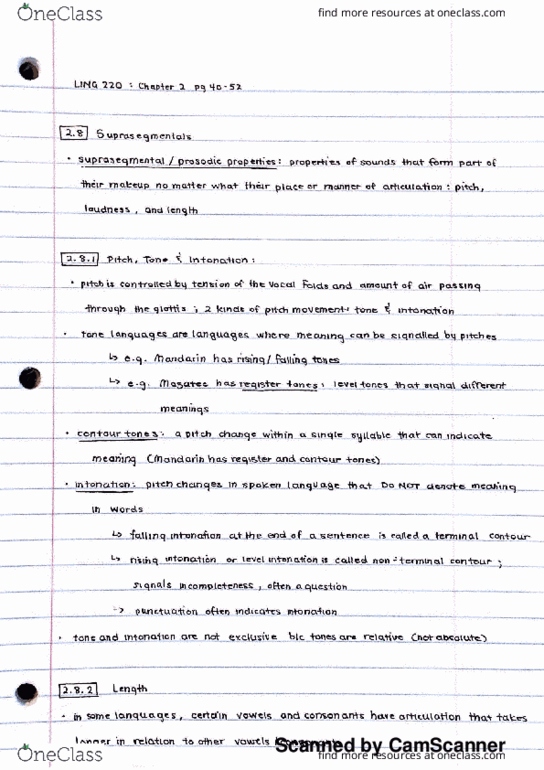 OneClass
find more resources at oneclass.com
LING 220 : Chapter 2 pg 40-52
2.8 Suprasegmentals
• suprasegmental / prosodic properties: properties of sounds that form part of
their makeup no matter what their place or manner of articulation : pitch,
loudness, and length
2.8.1 Pitch, Tone & Intonation :
• pitch is controlled by tension of the vocal folds and amount of air passing
through the glottis ; 2 kinds of pitch movement: tone & intonation
• tone languages are languages where meaning can be signalled by pitches
↳ e.g. Mandarin has rising/ falling tones
↳ e.g. Mazatec has register tones: level tones that signal different
meanings
• contour tones: a pitch change within a single syllable that can indicate
meaning (Mandarin has register and contour tones)
• intonation: pitch changes in spoken language that DO NOT denote meaning
in words
↳ falling intonation at the end of a sentence is called a terminal contour
↳ rising intonation or level intonation is called non-terminal contour ;
signals incompleteness, often a question
↳ punctuation often indicates intonation
• tone and intonation are not exclusive b/c tones are relative (not absolute)
2.8.2 Length
• in some languages, certain vowels and consonants have articulation that takes
longer in relation to other vowels
Scanned by CamScanner
OneClass
find more resources at oneclass.com